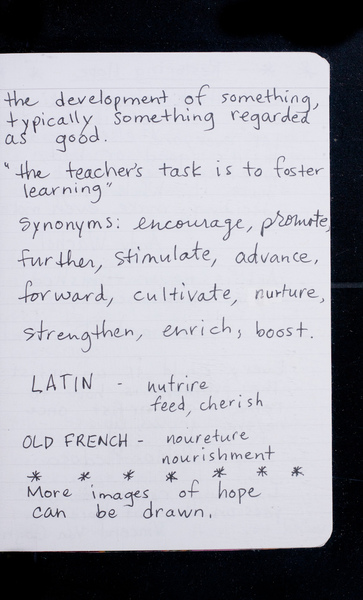 the development of something,
typically something regarded
as good.
"the teacher's task is to foster
learning"
Synonyms: encourage, promote,
further, stimulate, advance,
forward, cultivate, nurture,
strengthen, enrich, boost.
LATIN - nutrire
feed, cherish
OLD FRENCH - noureture
nourishment
* * * * * * *
More images of hope
can be drawn.